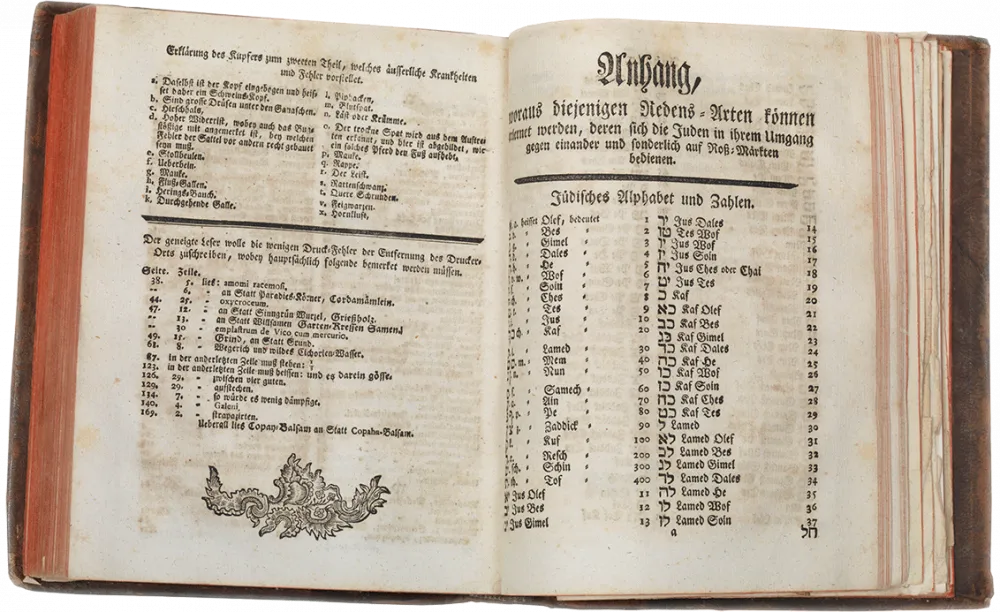 Erklärung des Kupfers zum zweeten Theil, welches äusserliche Krankheiten
und Fehler vorstellet.
a. Daselbst ist der Kopf eingebogen und heis-
set daher ein Schweins-Kopf.
b. Sind grosse Drüsen unter den Ganaschen.
c. Hirschhals.
d. Hoher Widerrist, wobey auch das
mit angemerket ist, bey welchen
Fehler der Sattel vor andern recht gebauet
seyn muß.
e. Stollbeulen.
f. Ueberbein.
g. Mauke.
h. Fluß-Gallen.
i. Herings-Bauch.
k. Durchgehende Galle.
l. Piphacken.
m. Blutspat.
n. Hase oder Krümme.
o. Der trockne Spat wird aus dem Auftre-
ten erkennt, und hier ist abgebildet, wie
ein solches Pferd den Fuß aufhebt.
p. Mauke.
q. Rappe.
r. Der Leist.
s. Rattenschwanz.
t. Quere Schrunden.
v. Feigwarzen.
x. Hornkluft.
Der geneigte Leser wolle die wenigen Druck-Fehler der Entfernung des Drucker-
Orts zuschreiben, wobey hauptsächlich folgende bemerket werden müssen.
Seite. Zeile.
38. 5. lies: amomi racemosi.
„ 6. „ an Statt Paradies-Körner, Cardamämlein.
44. 25. „ oxycroceum.
47. 12. „ an Statt Sinngrün Wurzel, Grießholz.
„ 13. „ an Statt Garten-Kressen Samen.
„ 30 „ emplastrum de Vico cum mercurio.
49. 15. „ Grind, an Statt Grund.
68. 8. „ Wegerich und wildes Cichorien-Wasser.
87. in der anderletzten Zeile muß stehen:
123. in der anderletzten Zeile muß heissen: und es darein gösse.
126. 29. „ zwischen vier guten.
129. 29. „ aufstechen.
114. 7. „ so würde es wenig dämpfige.
140. 4. „ Galeni.
169. 2. „ strapazirten.
Ueberall lies Copay-Balsam an Statt Copahu-Balsam.
Anhang,
woraus diejenigen Redens-Arten können
erlernet werden, deren sich die Juden in ihrem Umgang
gegen einander und sonderlich auf Roß-Märkten
bedienen.
Jüdisches Alphabet und Zahlen.
a. heisset Olef, bedeutet 1
„ Bes „ 2
„ Gimel „ 3
„ Dales „ 4
„ He „ 5
„ Wof „ 6
„ Soin „ 7
„ Ches „ 8
„ Tes „ 9
„ Jus „ 10
„ Kaf „ 20
„ Lamed „ 30
„ Mem „ 40
„ Nun „ 50
„ Samech „ 60
„ Ain „ 70
„ Pe „ 80
„ Zaddick „ 90
„ Kuf „ 100
„ Resch „ 200
„ Schin „ 300
„ Tof „ 400
Jus Olef 11
Jus Bes 12
Jus Gimel 13
יד Jus Dales 14
טו Tes Wof 15
יו Jus Wof 16
יז Jus Soin 17
יח Jus Ches oder Chai 18
יט Jus Tes 19
כ Kaf 20
כא Kaf Olef 21
כב Kaf Bes 22
כג Kaf Gimel 23
כד Kaf Dales 24
כה Kaf He 25
כו Kaf Wof 26
כז Kaf Soin 27
כח Kaf Ches 28
כט Kaf Tes 29
ל Lamed 30
לא Lamed Olef 31
לב Lamed Bes 32
לג Lamed Gimel 33
לד Lamed Dales 34
לה Lamed He 35
לו Lamed Wof 36
לז Lamed Soin 37
a
לח